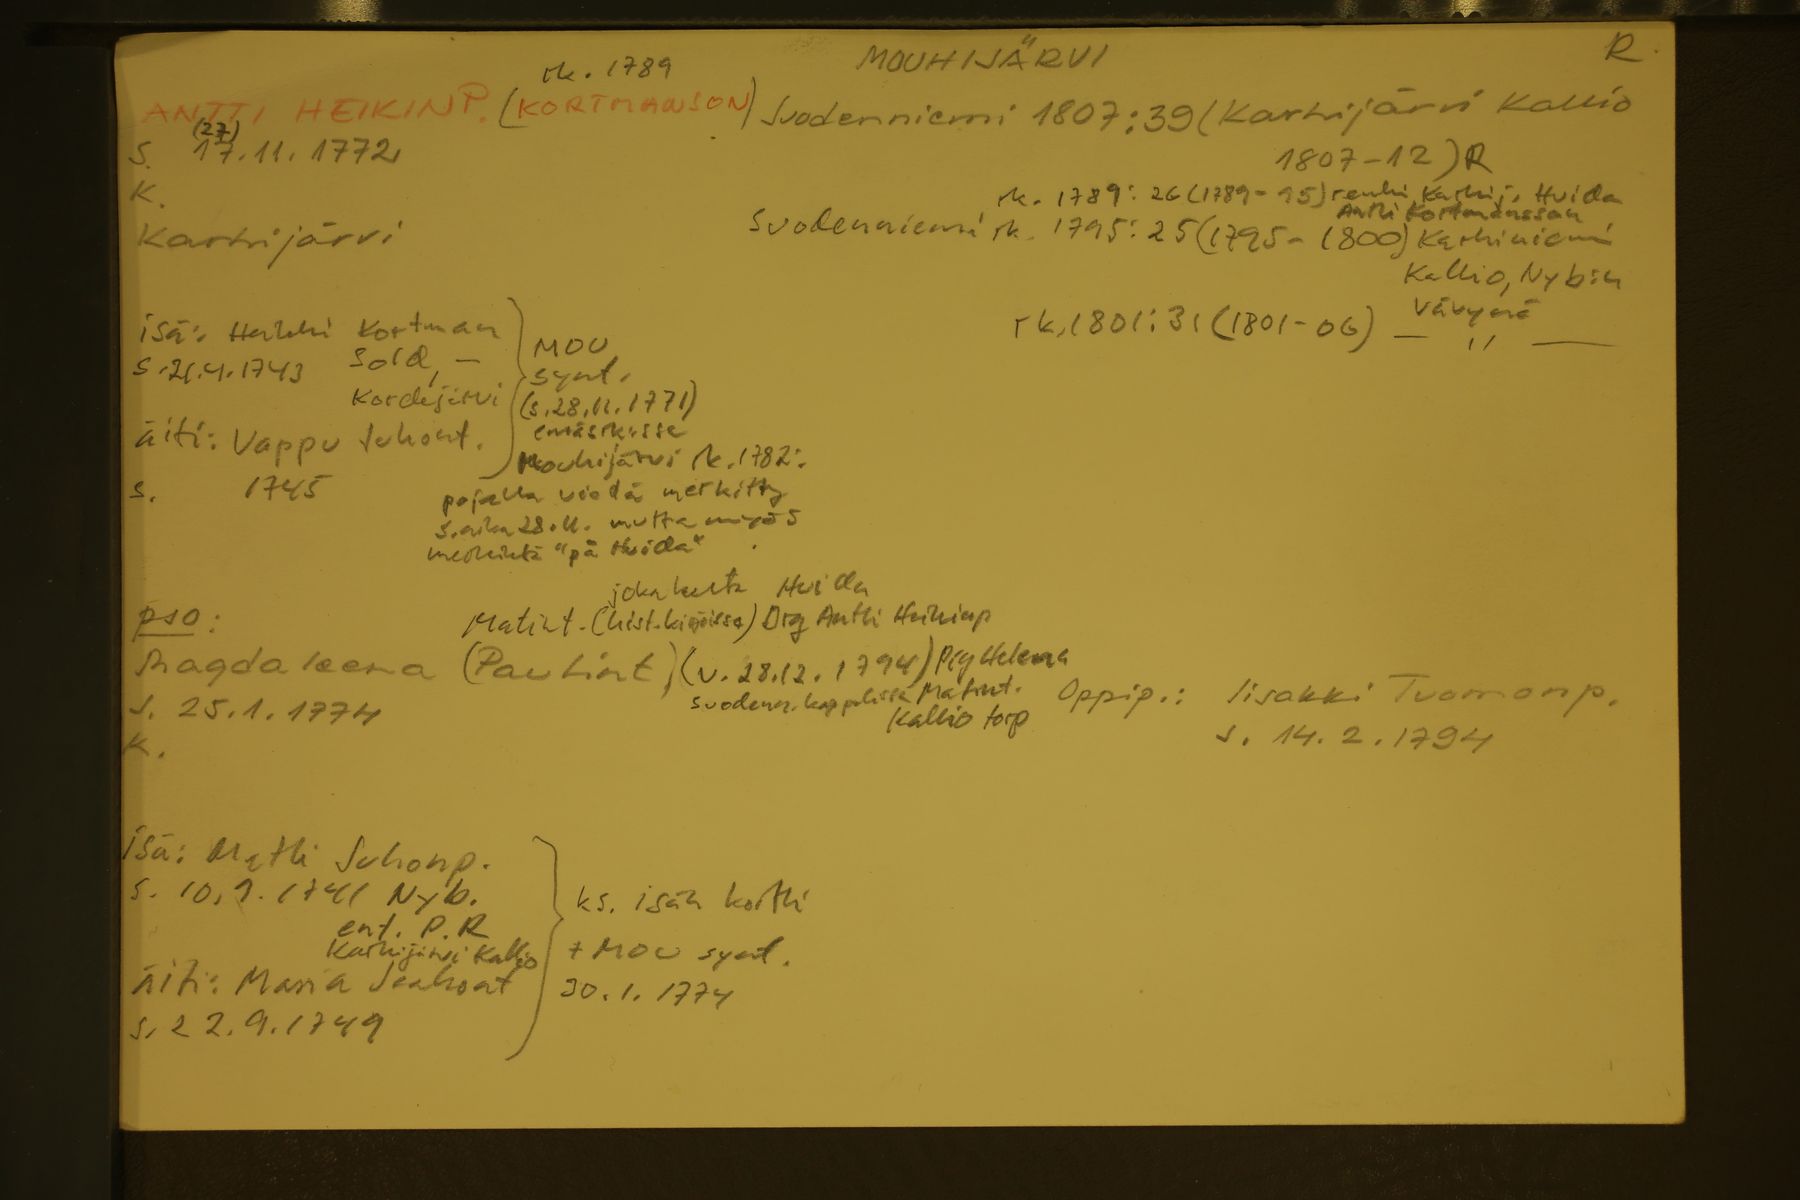 MOUHIJÄRVI
R.
rk. 1789
ANTTI HEIKINP. (KORTMANSON)
Suodenniemi 1807:39 (Karhijärvi Kallio
1807-12) R
(27)
S. 17.11.1772
K.
Karhijärvi
rk. 1789: 26 (1789-95) renki, Karhij. Hvida
Antti Kortmansson
Suodenniemi rk. 1795: 25 (1795-1800) Karhiniemi
Kallio, Nyb:n
vävynä
rk. 1801: 31 (1801-06) — ,, —
isä: Heikki Kortman
s. 21.4.1743 Sold, —
Kordejärvi
äiti: Vappu Juhont.
s. 1745
MOU
synt.
(s. 28.11.1771)
emäsrk:ssa
Mouhijärvi rk. 1782:
pojalla vielä merkitty
s.aika 28.11. mutta myös
merkintä "på Hvida"
joka kulta Hvida
pso:
Matint. (hist.kirjoissa) Drg Antti Heikinp
Magdaleena (Paulint.) (v. 28.12.1794) Pig Helena
Suodenn. kappelissa Matint.
Kallio torp
s. 25.1.1774
K.
Oppip.: Iisakki Tuomonp.
s. 14.2.1794
isä: Matti Juhonp.
s. 10.9.1741 Nyb.
ent. P.R
Karhijärvi Kallio
äiti: Maria Jaakont
s. 22.9.1749
ks. isän kortti
+ MOU synt.
30.1.1774